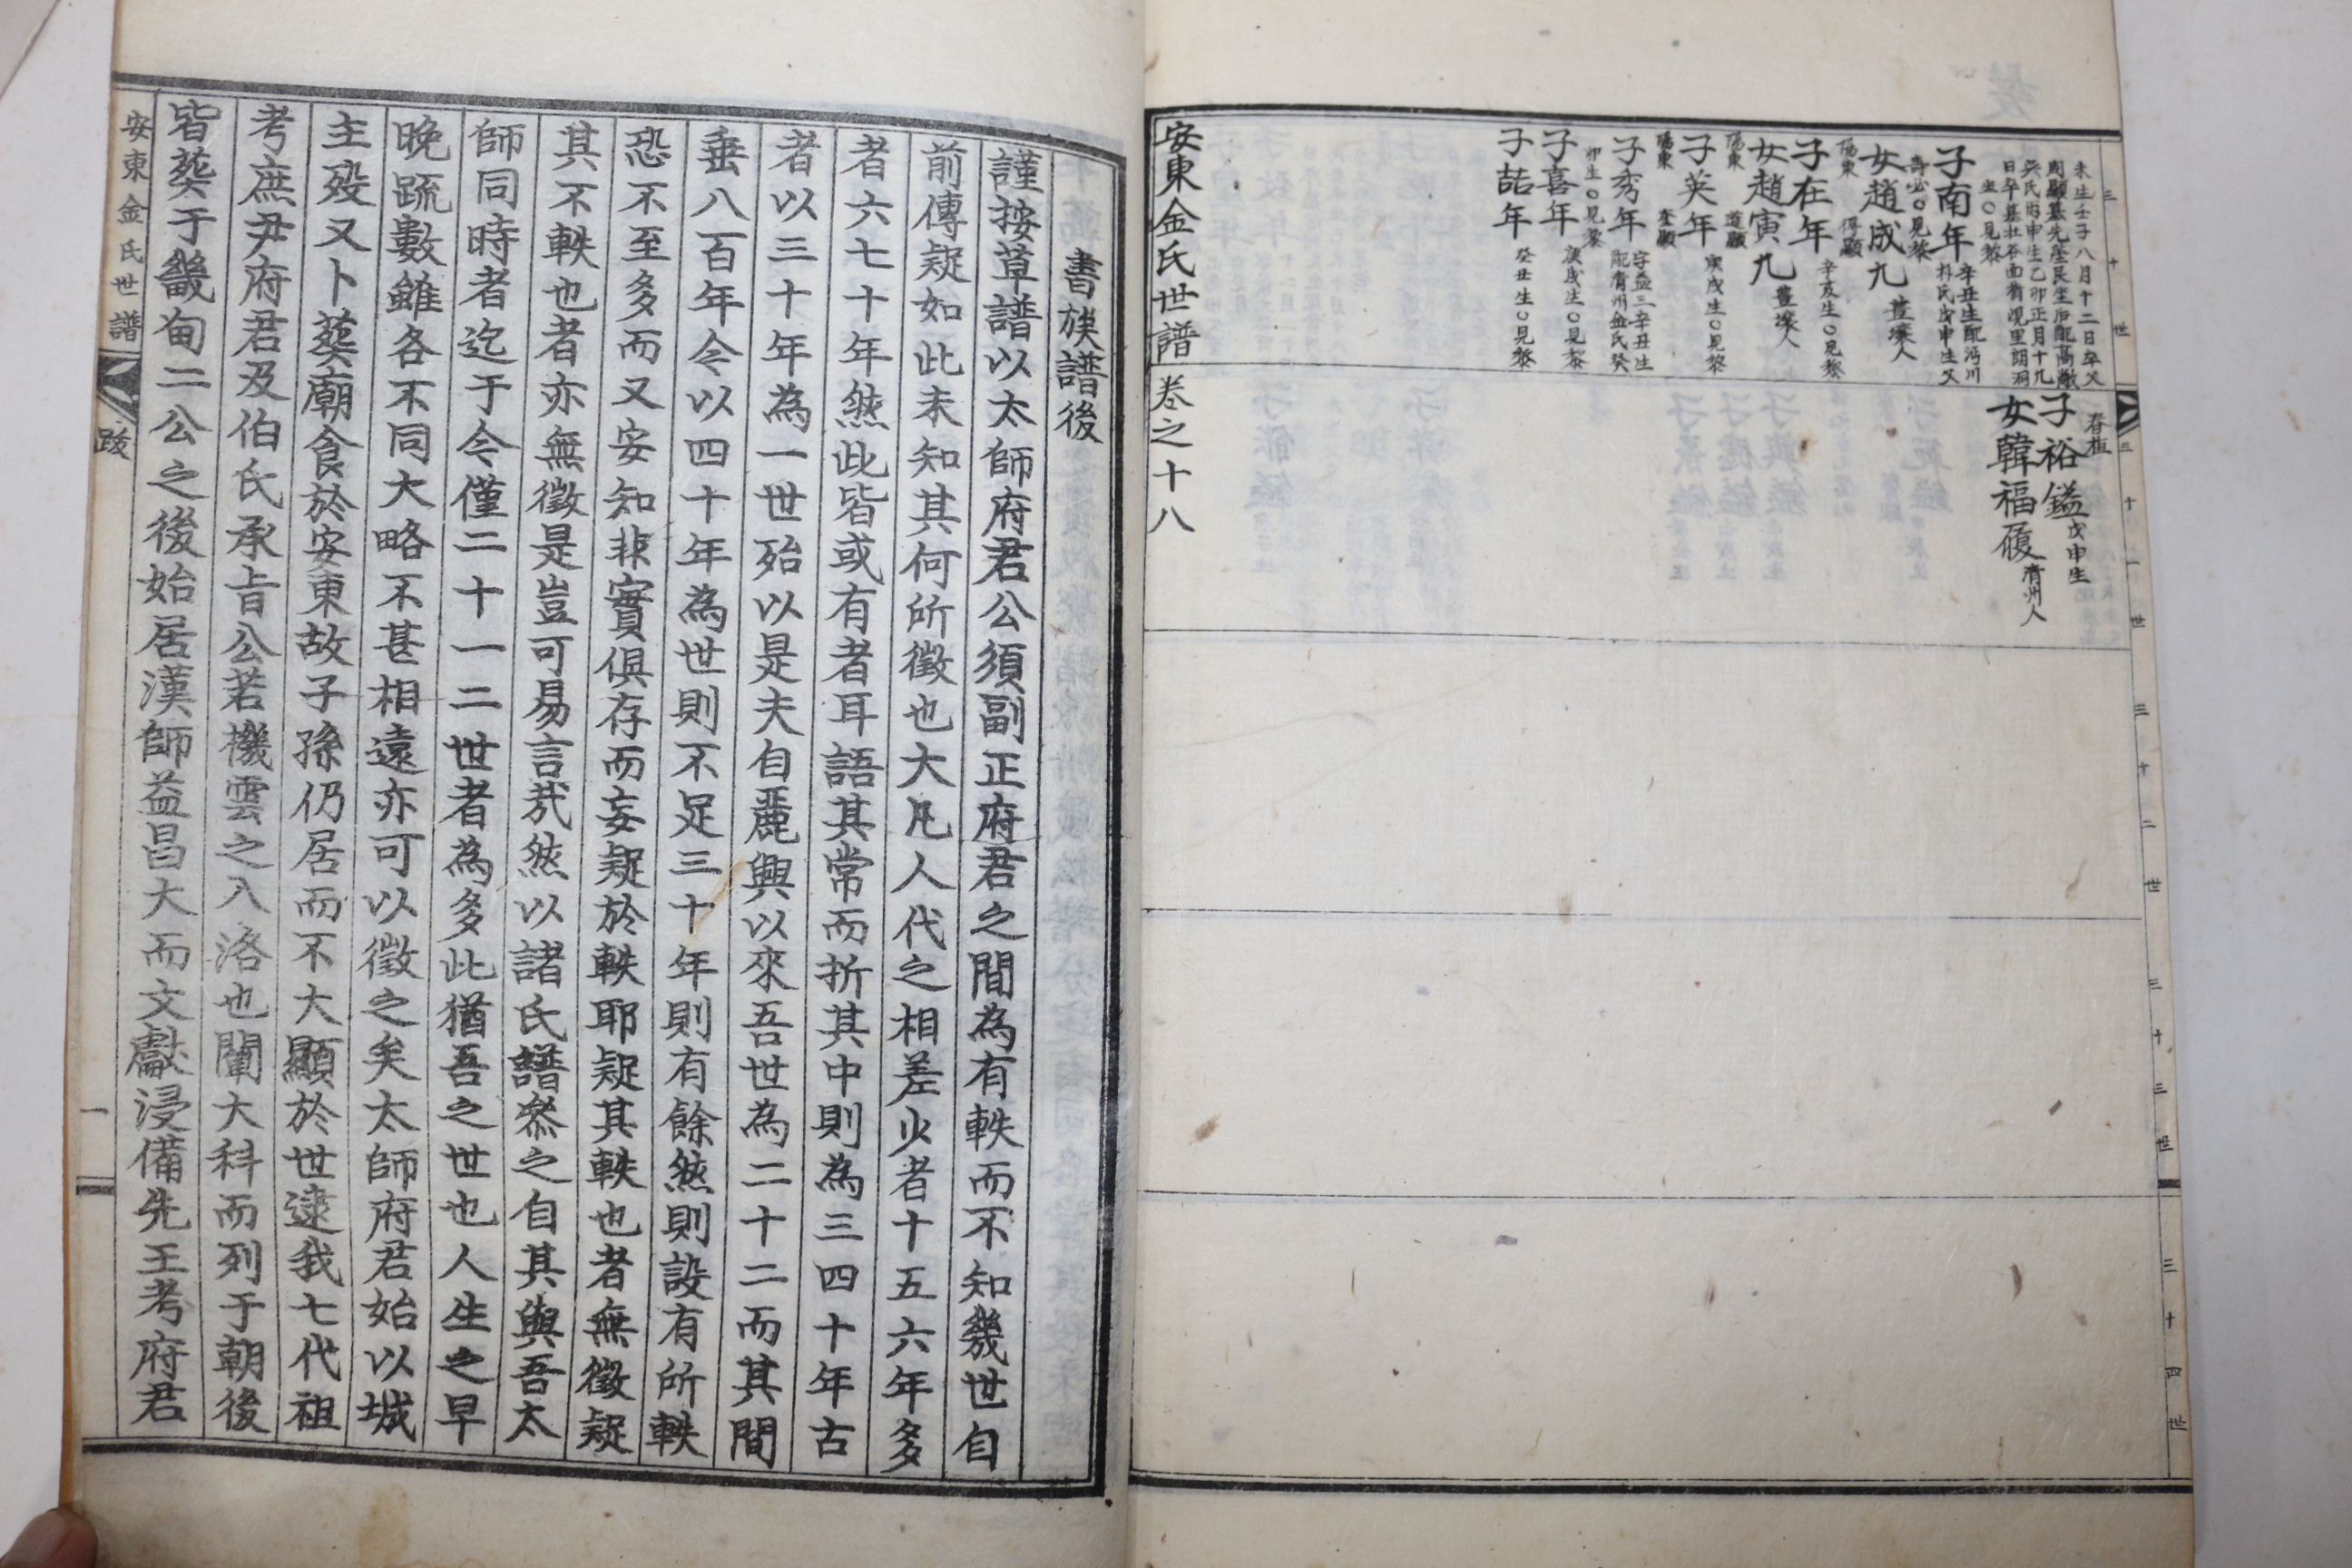 三十世
三十一世
三十二世
三十三世
三十四世
未生壬子八月十二日卒父
周顯墓先塋艮坐后配高敞
吳氏丙申生乙卯正月十九
日卒墓壯谷面有峴里胡洞
坐○見黎
子南年
辛丑生配沔川
朴氏戊申生父
壽必○見黎
女趙成九
豊壤人
陽東
得顯
子在年
辛亥生○見黎
女趙寅九
豊壤人
陽東
道顯
子英年
庚戌生○見黎
陽東
奎顯
子秀年
字益三辛丑生
配清州金氏癸
卯生○見黎
子喜年
庚戌生○見黎
子喆年
癸丑生○見黎
春植
子裕鎰
戊申生
女韓福履
清州人
安東金氏世譜
卷之十八
書族譜後
謹按草譜以太師府君公須副正府君之間為有軼而不知幾世自
前傳疑如此未知其何所徵也大凡人代之相差少者十五六年多
者六七十年然此皆或有者耳語其常而折其中則為三四十年古
者以三十年為一世殆以是夫自麗興以來吾世為二十二而其間
垂八百年今以四十年為世則不足三十年則有餘然則設有所軼
恐不至多而又安知非實俱存而妄疑於軼耶疑其軼也者無徵疑
其不軼也者亦無徵是豈可易言㢤然以諸氏譜叅之自其與吾太
師同時者迄于今僅二十一二世者為多此猶吾之世也人生之早
晚䟽數雖各不同大略不甚相遠亦可以徵之矣太師府君始以城
主歿又卜葬廟食於安東故子孫仍居而不大顯於世逮我七代祖
考庶尹府君及伯氏承旨公若機雲之入洛也闡大科而列于朝後
皆葬于畿甸二公之後始居漢師益昌大而文獻浸備先王考府君
安東金氏世譜
跋
一